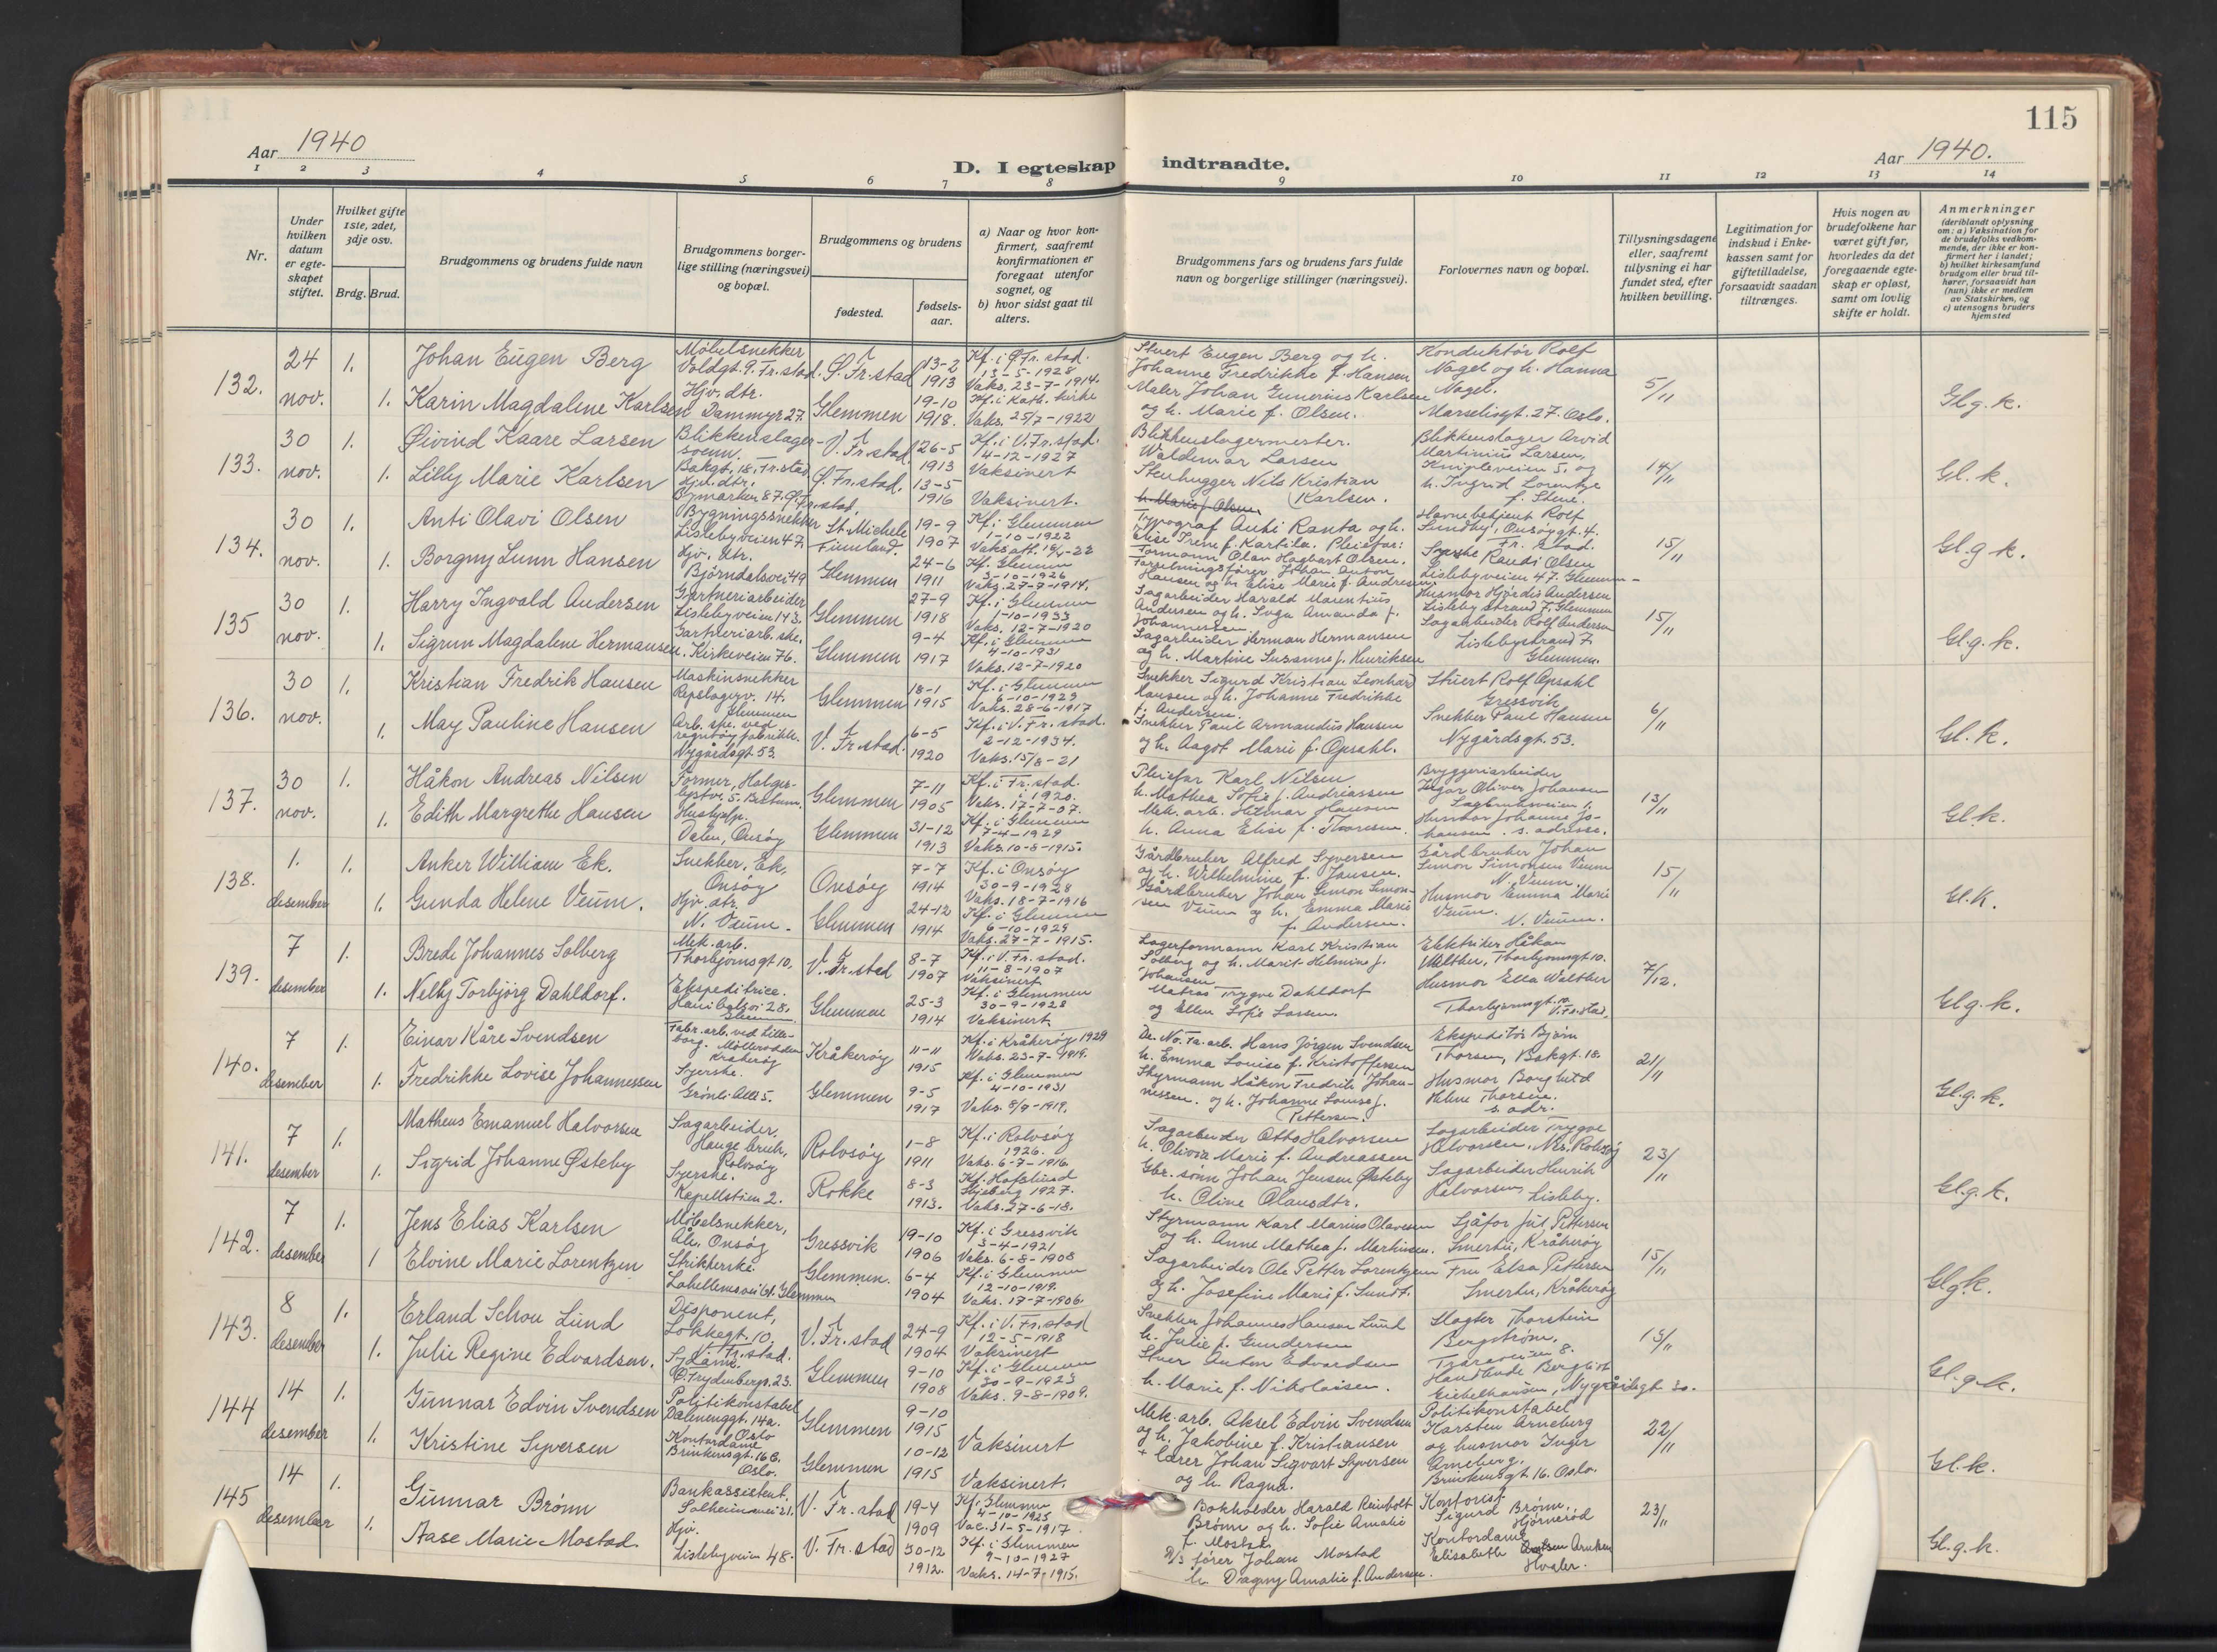 115
Aar 1940
Aar 1940.
D. I egteskap indtraadte.
1 2 3 4 5 6 7 8 9 10 11 12 13 14
Nr.
Under hvilken datum er egteskapet stiftet.
Hvilket gifte 1ste, 2det, 3dje osv.
Brdg. Brud.
Brudgommens og brudens fulde navn
Brudgommens borgerlige stilling (næringsvei) og bopæl.
Brudgommens og brudens
fødested.
fødselsaar.
a) Naar og hvor konfirmert, saafremt konfirmationen er foregaat utenfor sognet, og
b) hvor sidst gaat til alters.
Brudgommens fars og brudens fars fulde navn og borgerlige stillinger (næringsvei).
Forlovernes navn og bopæl.
Tillysningsdagene eller, saafremt tillysning ei har fundet sted, efter hvilken bevilling.
Legitimation for indskud i Enkekassen samt for giftetilladelse, forsaavidt saadan tiltrænges.
Hvis nogen av brudefolkene har været gift før, hvorledes da det foregaaende egteskap er opløst, samt om lovlig skifte er holdt.
Anmerkninger
(deriblandt oplysning om: a) Vaksination for de brudefolks vedkommende, der ikke er konfirmert her i landet; b) hvilket kirkesamfund brudgom eller brud tilhører, forsaavidt han (hun) ikke er medlem av Statskirken, og c) utensogns bruders hjemsted
132. 24 nov. 1. Johan Eugen Berg Møbelsnekker Voldgt. 9. Fr.stad. Ø. Fr.stad 13-2 1913 Kf. i Ø. Fr.stad. 13-5-1928 Vaks. 23-7-1914. Stuert Eugen Berg og h. Johanne Fredrikke f. Hansen Konduktør Rolf Nagel og h. Hanna Nagel. 5/11 Gl.g.k.
1. Karin Magdalene Karlsen Hjv. dtr. Dammyr 27. Glemmen 19-10 1918. Kf. i Kath. kirke Vaks. 25/7-1922 Maler Johan Gunerius Karlsen og h. Marie f. Olsen. Marselisgt. 27. Oslo.
133. 30 nov. 1. Øivind Kaare Larsen Blikkenslagersvenn. Bakgt. 18. Fr.stad V. Fr.stad 26-5 1913 Kf. i V. Fr.stad. 4-12-1927 Vaksinert Blikkenslagermester. Waldemar Larsen Blikkenslager Arvid Martinius Larsen, Knipleveien 5. og h. Ingrid Lorentze f. Stene. 14/11 Gl.k.
1. Lilly Marie Karlsen Hjv. dtr. Bymarken 87. Ø. Fr.stad. Ø. Fr.stad. 13-5 1916 Vaksinert. Stenhugger Nils Kristian Karlsen. h. Marie f. Olsen
134. 30 nov. 1. Anti Olavi Olsen Bygningssnekker Lislebyveien 47. St. Michele Finnland. 19-9 1907 Kf. i Glemmen 1-10-1922 Typograf Anti Ranta og h. Elise Irene f. Kartila. Pleiefar: Formann Olav Hagbart Olsen. Havnebetjent Rolf Lundby, Onsøygt. 4. Fr.stad. 15/11 Gl.g.k.
1. Borgny Lunn Hansen Hjv. dtr. Bjørndalsvei 49 Glemmen 24-6 1911 Kf. Glemmen 3-10-1926 Vaks. 27-7-1914. Forretningsfører Johan Anton Hansen og h. Elise Marie f. Andresen. Syerske Randi Olsen Lislebyveien 47. Glemmen
135 30 nov. 1. Harry Ingvald Andersen Gartneriarbeider Lislebyveien 143. Glemmen 27-9 1918 Kf. i Glemmen 1-10-1933 Vaks. 12-7-1920 Sagarbeider Harald Marentius Andersen og h. Inga Amanda f. Johannessen Husmor Hjørdis Andersen Lisleby strand 7. Glemmen 15/11 Gl.g.k.
1. Sigrun Magdalene Hermansen. Gartneriarb. ske. Kirkeveien 76. Glemmen 9-4 1917 Kf. i Glemmen 4-10-1931 Vaks. 12-7-1920 Sagarbeider Herman Hermansen og h. Martine Susanne f. Henriksen Sagarbeider Rolf Andersen Lislebystrand 7. Glemmen.
136. 30 nov. 1. Kristian Fredrik Hansen Maskinsnekker Repslagerv. 14. Glemmen Glemmen 18-1 1915 Kf. i Glemmen 6-10-1929 Vaks. 28-6-1917 Snekker Sigurd Kristian Leonhard Hansen og h. Johanne Fredrikke f. Andersen. Stuert Rolf Opsahl Gressvik 6/11 Gl.k.
1. May Pauline Hansen Arb. ske. ved regntøyfabrikk. Nygårdsgt. 53. V. Fr.stad. 6-5 1920 Kf. i V. Fr.stad. 2-12-1934. Vaks. 15/8-21 Snekker Paul Armandus Hansen og h. Aagot Marie f. Opsahl. Snekker Paul Hansen Nygårdsgt. 53.
137. 30 nov. 1. Håkon Andreas Nilsen Former, Glemmen 7-11 1905 Kf. i Fr.stad. i 1920. Vaks. 17-7-07. Pleiefar Karl Nilsen h. Mathea Sofie f. Andriassen Bryggeriarbeider Oliver Johansen 13/11 Gl.k.
1. Edith Margrethe Hansen Hushjelp. Dalen, Onsøy Glemmen 31-12 1913 Kf. i Glemmen 7-4-1929 Vaks. 10-8-1915. Mek. arb. Hilmar Hansen h. Anna Elise f. Thoresen. Husmor Johanne Johansen. s. adresse.
138. 1. desember 1. Anker William Ek. Snekker, Ek, Onsøy Onsøy 7-7 1914 Kf. i Onsøy 30-9-1928 Vaks. 18-7-1916 Gårdbruker Alfred Syversen og h. Wilhelmine f. Jansen. Gårdbruker Johan Simon Simonsen Veum N. Veum. 15/11 Gl.K.
1. Gunda Helene Veum. Hjv. dtr. N. Veum. Glemmen 24-12 1914 Kf. i Glemmen 6-10-1929 Vaks. 27-7-1915. Gårdbruker Johan Simon Simonsen Veum og h. Emma Marie f. Andersen. Husmor Emma Marie Veum. N. Veum.
139. 7 desember 1. Brede Johannes Solberg Mek. arb. Thorbjørnsgt 10. V. Fr.stad 8-7 1907 Kf. i V. Fr.stad. 11-8-1907 Vaksinert Lagerformann Karl Kristian Solberg og h. Marit Helmine f. Johansen Elektriker Håkon Walther, Thorbjørnsgt 10. 7/12. Gl.g.k.
1. Nelly Torbjörg Dahldorf. Ekspeditrice. Hanibalsvei 28. Glemmen Glemmen 25-3 1914 Kf. i Glemmen 30-9-1928 Vaksinert Matros Trygve Dahldorf og Ellen Sofie Larsen. Husmor Ella Walther Thorbjørnsgt. 10. V. Fr.stad.
140. 7 desember 1. Einar Kåre Svendsen Fabr. arb. ved Lilleborg. Møllerodden Kråkerøy Kråkerøy 11-11 1915 Kf. i Kråkerøy 1929 Vaks. 23-7-1919. De. No. Fa. arb. Hans Jørgen Svendsen h. Emma Louise f. Kristoffersen Ekspeditör Bjørn Thorsen, Bakgt. 18. 21/11 Gl.g.k.
1. Fredrikke Lovise Johannessen Syerske. Grönli Allé 5. Glemmen 9-5 1917 Kf. i Glemmen 4-10-1931 Vaks. 8/9-1919. Styrmann Håkon Fredrik Johannessen. og h. Johanne Louise f. Pettersen. Husmor Borghild Helene Thorsen. s. adr.
141. 7 desember 1. Matheus Emanuel Halvorsen Sagarbeider, Hauge bruk, Rolvsøy Rolvsøy 1-8 1911 Kf. i Rolvsøy 1926. Vaks. 6-7-1916. Sagarbeider Otto Halvorsen h. Olivia Marie f. Andreassen Sagarbeider Trygve Halvorsen, Rolvsøy 23/11 Gl.g.k.
1. Sigrid Johanne Østeby Syerske. Kapellstien 2. Rokke 8-3 1913. Kf. Hafslund Skjeberg 1927. Vaks. 27-6-18. Gbr. sønn Johan Jensen Østeby h. Oline Olausdtr. Sagarbeider Henrik Halvorsen, Lisleby.
142. 7 desember 1. Jens Elias Karlsen Møbelsnekker, Åle, Onsøy Gressvik 19-10 1906 Kf. i Gressvik 3-4-1921 Vaks. 6-8-1908 Styrmann Karl Marius Olavesen og h. Anne Mathea f. Martinsen. Sjåfør Jul Pettersen Smertu, Kråkerøy 15/11 Gl.g.k.
1 Elvine Marie Lorentzen Strikkerske. Glemmen. 6-4 1904 Kf. i Glemmen 12-10-1919. Vaks. 17-7-1906. Sagarbeider Ole Petter Lorentzen og h. Josefine Marie f. Lundt. Fru Elsa Pettersen Smertu, Kråkerøy
143. 8 desember 1. Erland Schou Lund Disponent, Løkkegt. 10. V. Fr.stad. V. Fr.stad 24-9 1904 Kf. i V. Fr.stad 12-5-1918 Vaksinert Snekker Johannes Hansen Lund h. Julie f. Gundersen Slagter Thorstein Bergstrøm, Traraveien 8. 15/11 Gl.g.k.
1. Julie Regine Edvardsen. Sydame. Glemmen 9-10 1908 Kf. i Glemmen 30-9-1923 Vaks. 9-8-1909. Stuer Anton Edvardsen h. Marie f. Nikolaisen. Handlende Bergliot Eichelhansen, Nygårdsgt. 30.
144 14 desember 1. Gunnar Edvin Svendsen Politikonstabel Dalenenggt. 14a. Oslo Glemmen 9-10 1915 Vaksinert Mek. arb. Aksel Edvin Svendsen og h. Jakobine f. Kristiansen Politikonstabel Karsten Arneberg og husmor Inger Arneberg. Brinkensgt. 16. Oslo. 22/11 Gl.k.
1. Kristine Syversen Kontordame Brinkensgt. 16 C. Oslo. Glemmen 10-12 1915 Vaksinert. + Lærer Johan Sigvart Syversen og h. Ragna.
145 14 desember 1. Gunnar Brönn Bankassistent. Solheimsvei 21. V. Fr.stad 19-4 1909 Kf. Glemmen 4-10-1925 Vac. 31-5-1917. Bokholder Harald Reinholt Brönn og h. Sofie Amalie Kontorist Sigurd Brönn, Hjørnerød 23/11 Gl.g.k.
1. Aase Marie Mostad. Hjv. Lislebyveien 48. V. Fr.stad 30-12 1912. Kf. i Glemmen 9-10-1927 Vaks. 14-7-1915. D/S fører Johan Mostad h. Dagny Amalie f. Andersen. Kontordame Elisabeth Arntsen Hvaler.